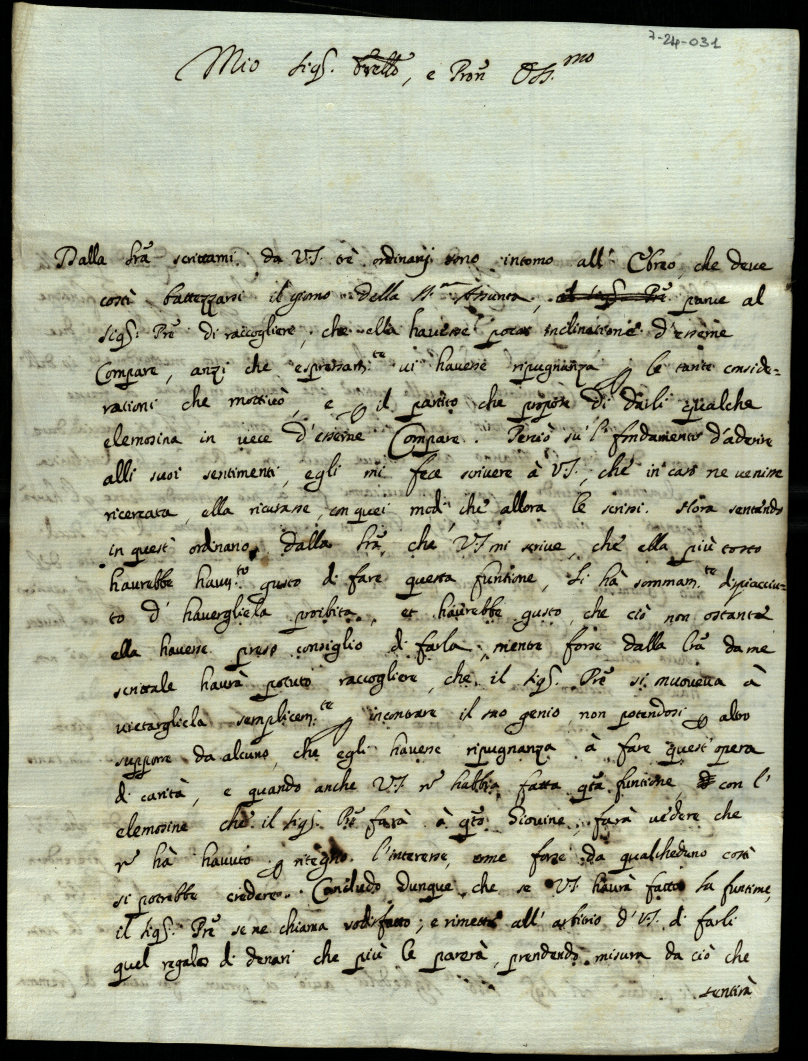 7-24-031
Mio Sigr. frello, e Pron Oss.mo
Dalla lra scrittami da V.S. trè ordinarij sono intorno all' Ebreo, che deve
costì battezzarsi il giorno della SS.ma Assunta, al Sigr. Pre parve al
Sigr. Pre di raccogliere, che ella havesse poca inclinatione d'esserne
Compare, anzi che espressam.te vi havesse ripugnanza p le tante conside=
rationi che mottivò, e p il partito che propose di darli qualche
elemosina in vece d'esserne Compare. Perciò su 'l fondamento d'aderire
alli suoi sentimenti, egli mi fece scrivere à V.S., che in caso ne venisse
ricercata, ella ricusasse, con quei modi che allora le scrissi. Hora sentendo
in quest' ordinario dalla lra, che V.S. mi scrive, che ella più tosto
havrebbe havu.to gusto di fare questa funtione, li hà sommam.te dispiacciu=
to d' haverghiela proibita, et haurebbe gusto, che ciò non ostante
ella havesse preso consiglio di farla, mentre forse dalla lra da me
scrittale haurà potuto raccogliere, che il Sigr. Pre si muoveva à
vietargliela semplicem.te p incontrare il suo genio, non potendosi p altro
supporre da alcuno, che egli havesse ripugnanza à fare quest' opera
di carità, e quando anche V.S. nò habbia fatta qta funtione, con l'
elemosine che il Sigr. Pre farà à qto Giovine, farà vedere che
nò hà havuto p ritegno l'interesse, come forse da qualcheduno costì
si potrebbe credere. Concludo dunque, che se V.S. haurà fatto la funtione,
il Sigr. Pre se ne chiama sodisfatto; e rimette all' arbitrio d' V.S. di farli
quel regalo di denari che più le parerà, prendendo misura da ciò che
sentirà